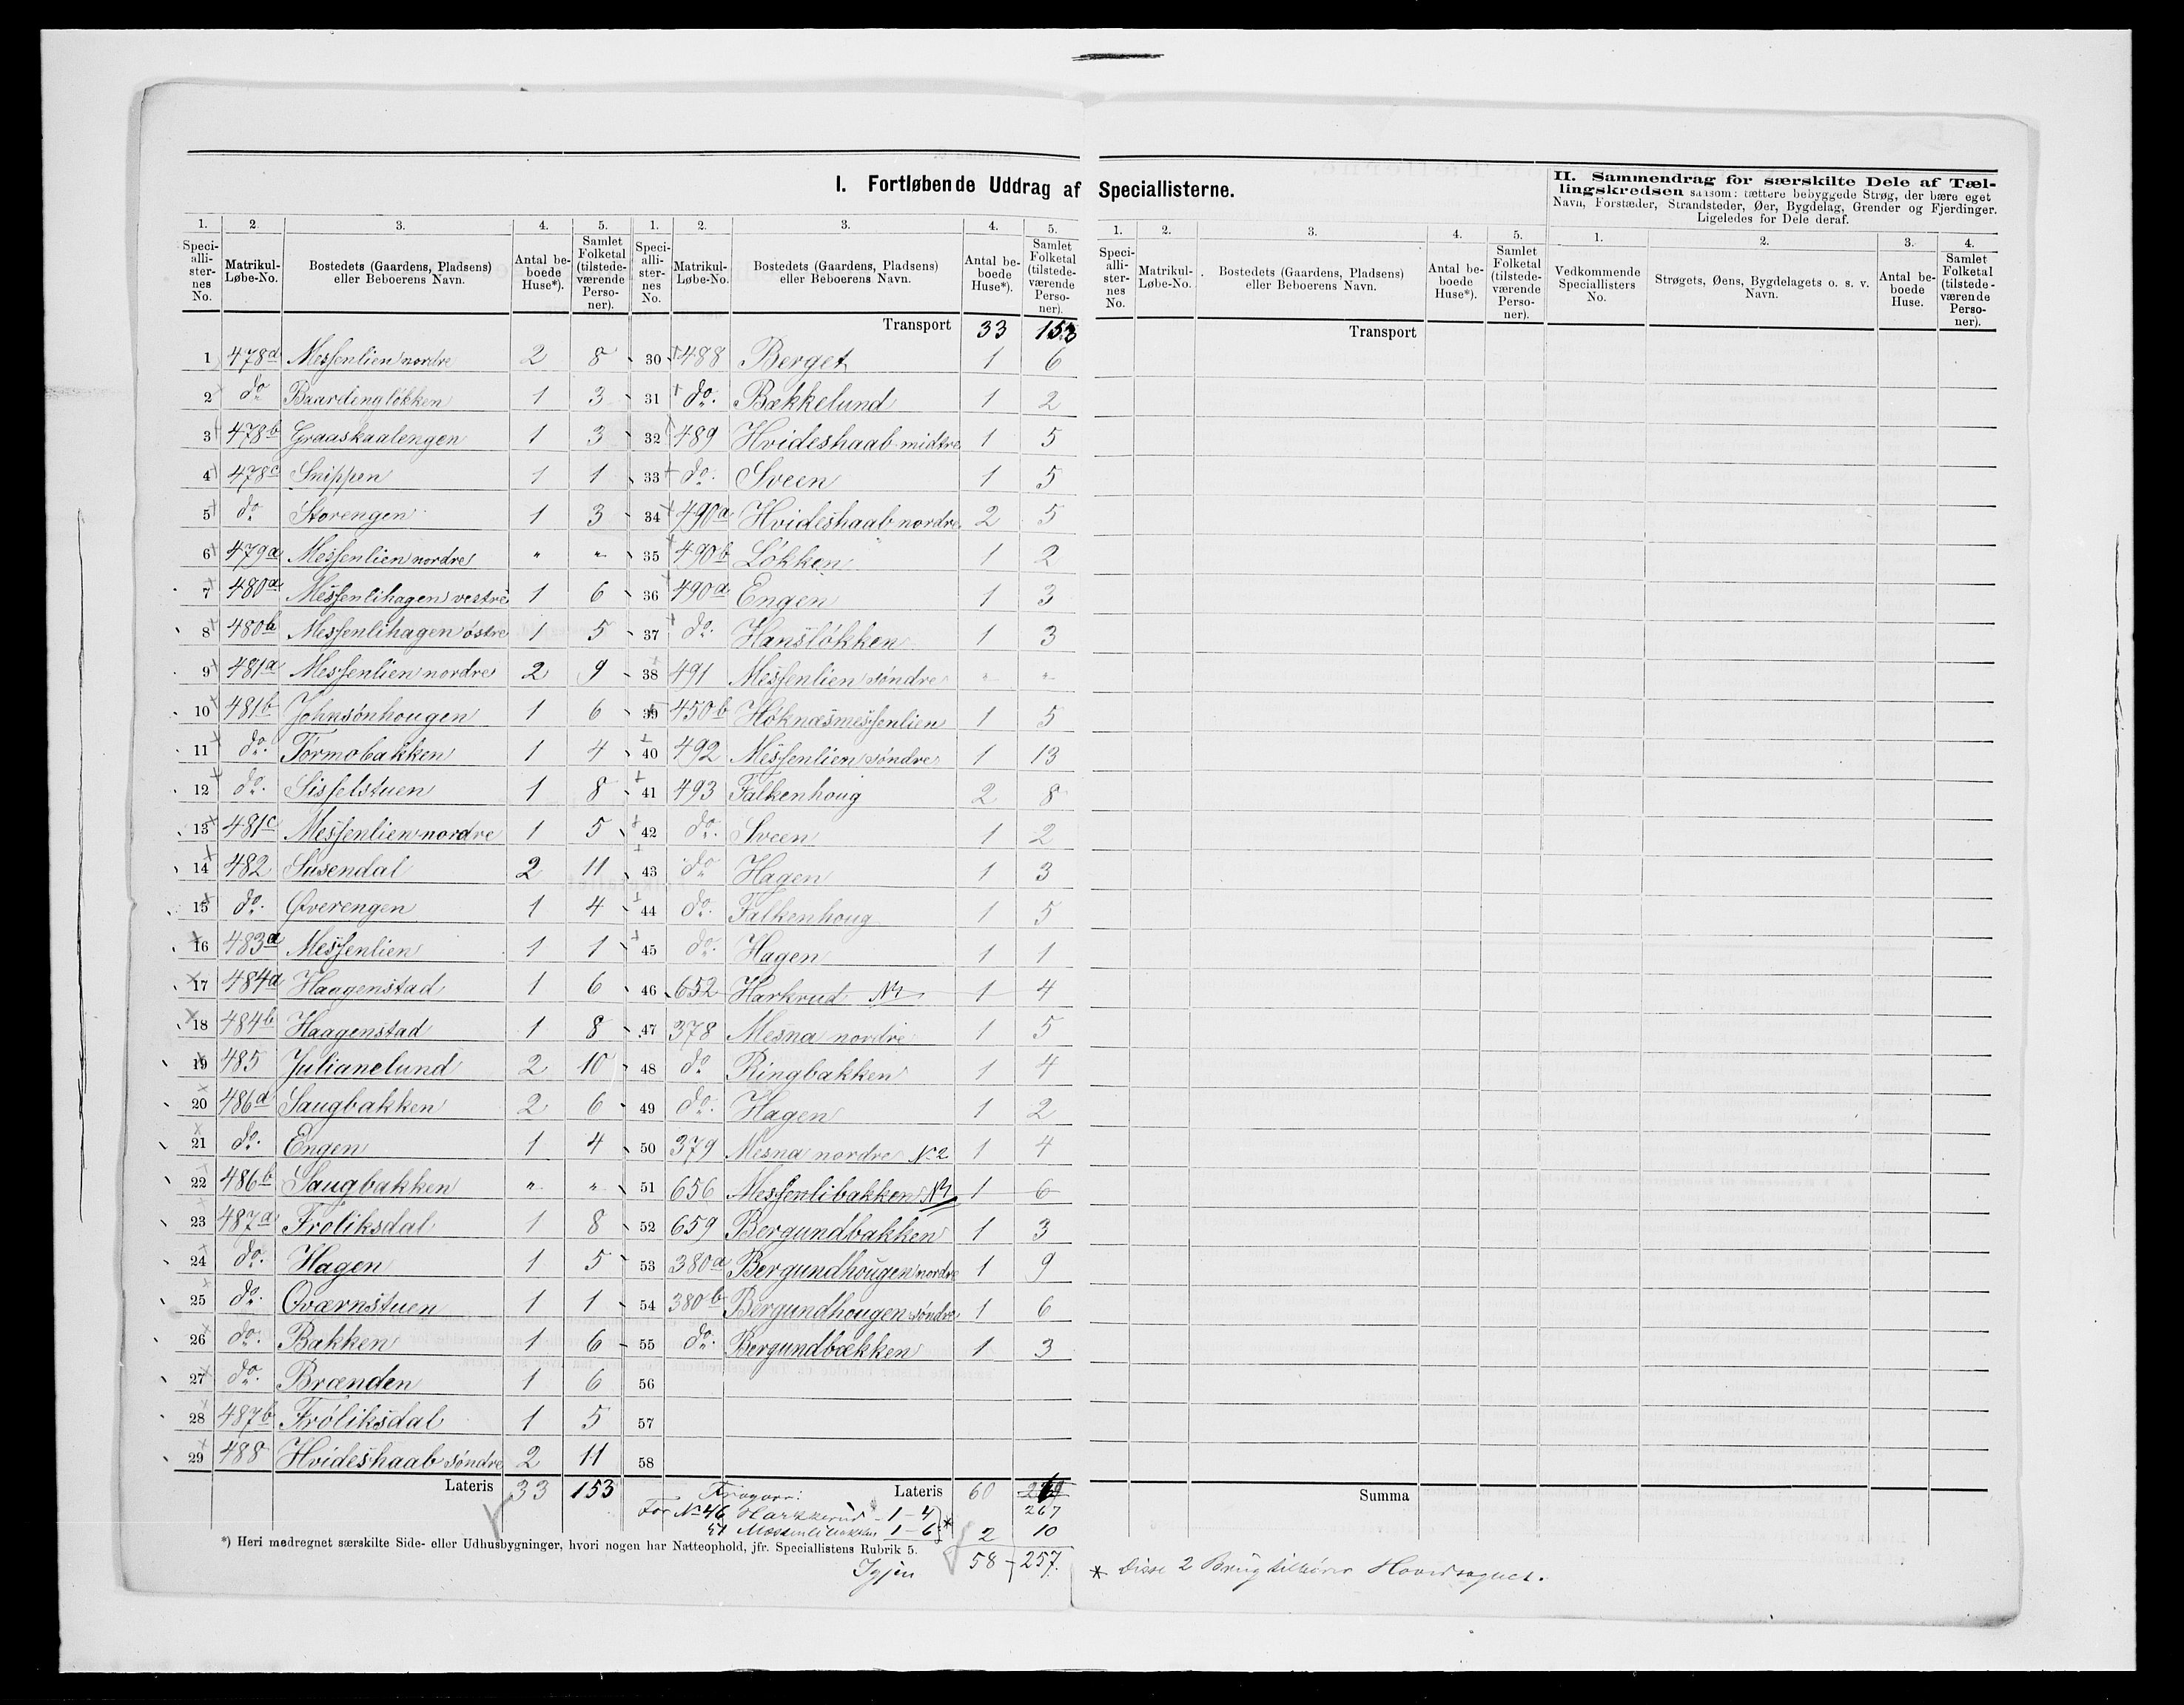 I. Fortløbende Uddrag af Speciallisterne.
1. 2. 3. 4. 5. 1. 2. 3. 4. 5.
Speciallisternes No. Matrikul-Løbe-No. Bostedets (Gaardens, Pladsens) eller Beboerens Navn. Antal beboede Huse*). Samlet Folketal (tilstedeværende Personer). Speciallisternes No. Matrikul-Løbe-No. Bostedets (Gaardens, Pladsens) eller Beboerens Navn. Antal beboede Huse*). Samlet Folketal (tilstedeværende Personer).
1 478a Messenlien nordre 2 8
2 do Baardengløkken 1 3
3 478b Graaskaalengen 1 3
4 478c Snippen 1 1
5 do Storengen 1 3
6 479a Messenlien nordre " "
7 480a Messenlihagen vestre 1 6
8 480b Messenlihagen østre 1 5
9 481a Messenlien nordre 2 9
10 481b Johnsønhougen 1 6
11 do. Tormobakken 1 4
12 do. Sisselstuen 1 8
13 481c Messenlien nordre 1 5
14 482 Susendal 2 11
15 do. Øverengen 1 4
16 483a Messenlien 1 1
17 484a Haagenstad 1 6
18 484b Haagenstad 1 8
19 485 Julianelund 2 10
20 486a Saugbakken 2 6
21 do. Engen 1 4
22 486b Saugbakken " "
23 487a Frøliksdal 1 8
24 do. Hagen 1 5
25 do. Qværnstuen 1 1
26 do. Bakken 1 6
27 do. Brænden 1 6
28 487b Frøliksdal 1 5
29 488 Hvideshaab søndre 2 11
Lateris 33 153
Transport 33 153
30 488 Berget 1 6
31 do. Bækkelund 1 2
32 489 Hvideshaab midtre 1 5
33 do. Sveen 1 5
34 490a Hvideshaab nordre 2 5
35 490b Løkken 1 2
36 490a Engen 1 3
37 do. Hansløkken 1 3
38 491 Messenlien søndre " "
39 450b Høknæsmessenlien 1 5
40 492 Messenlien søndre 1 13
41 493 Falkenhoug 2 8
42 do. Sveen 1 2
43 do Hagen 1 3
44 do. Falkenhoug 1 5
45 do. Hagen 1 1
46 652 Harkrud No 1 1 4
47 378 Mesna nordre 1 5
48 do Ringbakken 1 4
49 do. Hagen 1 2
50 379 Mesna nordre No 2 1 4
51 656 Messenlibakken No 1 1 6
52 659 Bergundbakken 1 3
53 380a Bergundhougen nordre 1 9
54 380b Bergundhougen søndre 1 6
55 do. Bergundbækken 1 3
56
57
58
Lateris 60
267
For No 46 Harkkerud 1 – 4
51 Messenlibakken 1 – 6 *
2 10
58 – 257.
Igjen
*) Heri medregnet særskilte Side- eller Udhusbygninger, hvori nogen har Natteophold, jfr. Speciallistens Rubrik 5.
1. 2. 3. 4. 5.
Speciallisternes No. Matrikul-Løbe-No. Bostedets (Gaardens, Pladsens) eller Beboerens Navn. Antal beboede Huse*). Samlet Folketal (tilstedeværende Personer).
Transport
Summa
* Disse 2 Brug tilhører Hovedsognet.
II. Sammendrag for særskilte Dele af Tællingskredsen saasom: tættere bebyggede Strøg, der bære eget
Navn, Forstæder, Strandsteder, Øer, Bygdelag, Grender og Fjerdinger.
Ligeledes for Dele deraf.
1. 2. 3. 4.
Vedkommende Speciallisters No. Strøgets, Øens, Bygdelagets o. s. v. Navn. Antal beboede Huse. Samlet Folketal (tilstedeværende Personer).